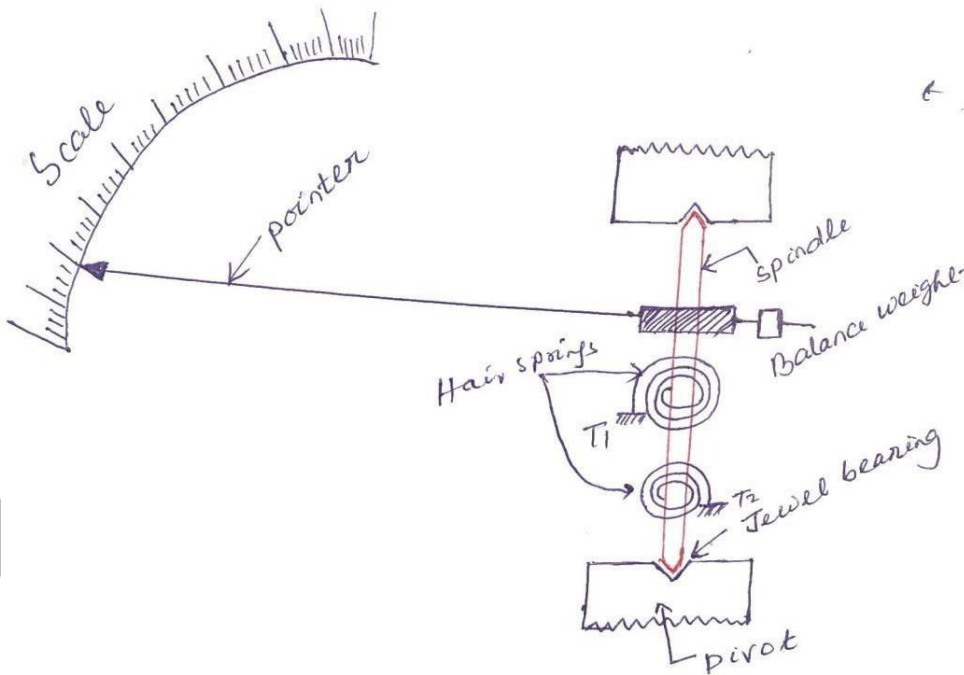 Scale
pointer
spindle
Balance weight
Hair springs
T1
T2
Jewel bearing
pivot